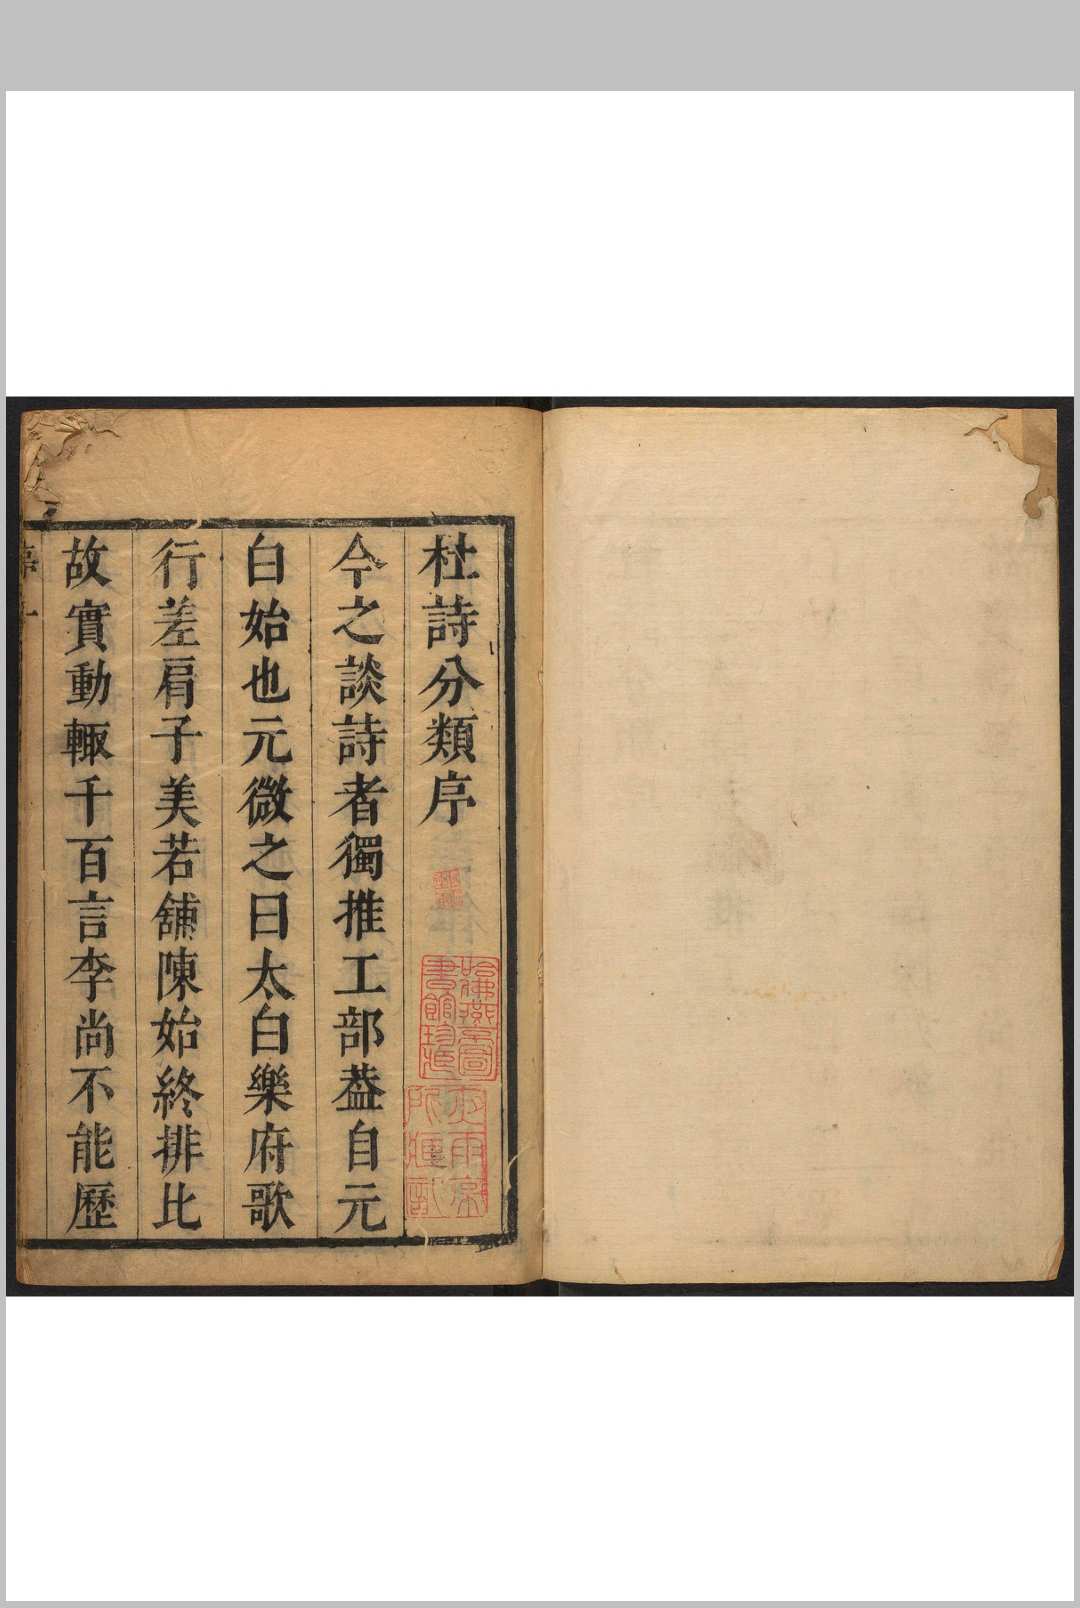 杜詩分類序
今之談詩者獨推工部葢自元
白始也元微之曰太白樂府歌
行差肩子美若舖陳始終排比
故實動輙千百言李尚不能歷
哈佛燕京圖
書館珍藏